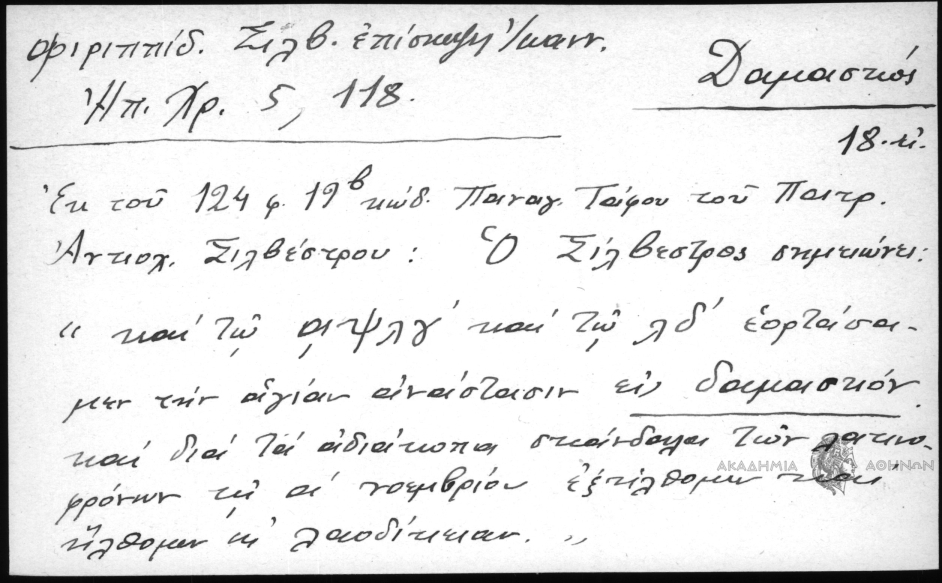 Φιλιππίδ. Σιλβ. ἐπίσκεψη Ἰωανν.
Ἠπ. Χρ. 5, 118.
Δαμασκός
18. αἰ.
Ἐκ τοῦ 124 φ. 19β κώδ. Παναγ. Τάφου τοῦ Πατρ.
Ἀντιοχ. Σιλβέστρου : Ὁ Σίλβεστρος σημειώνει:
“ καί τῷ ͵αψλγ' καί τῷ λδ' ἑορτάσα-
μεν τήν ἁγίαν ἀνάστασιν εἰς δαμασκόν.
καί διά τά ἀδιάκοπα σκάνδαλα τῶν λατινο-
φρόνων τῇ α' νοεμβρίου ἐξήλθομεν καί
ἤλθομεν εἰς λαοδίκειαν. „
ΑΚΑΔΗΜΙΑ ΑΘΗΝΩΝ